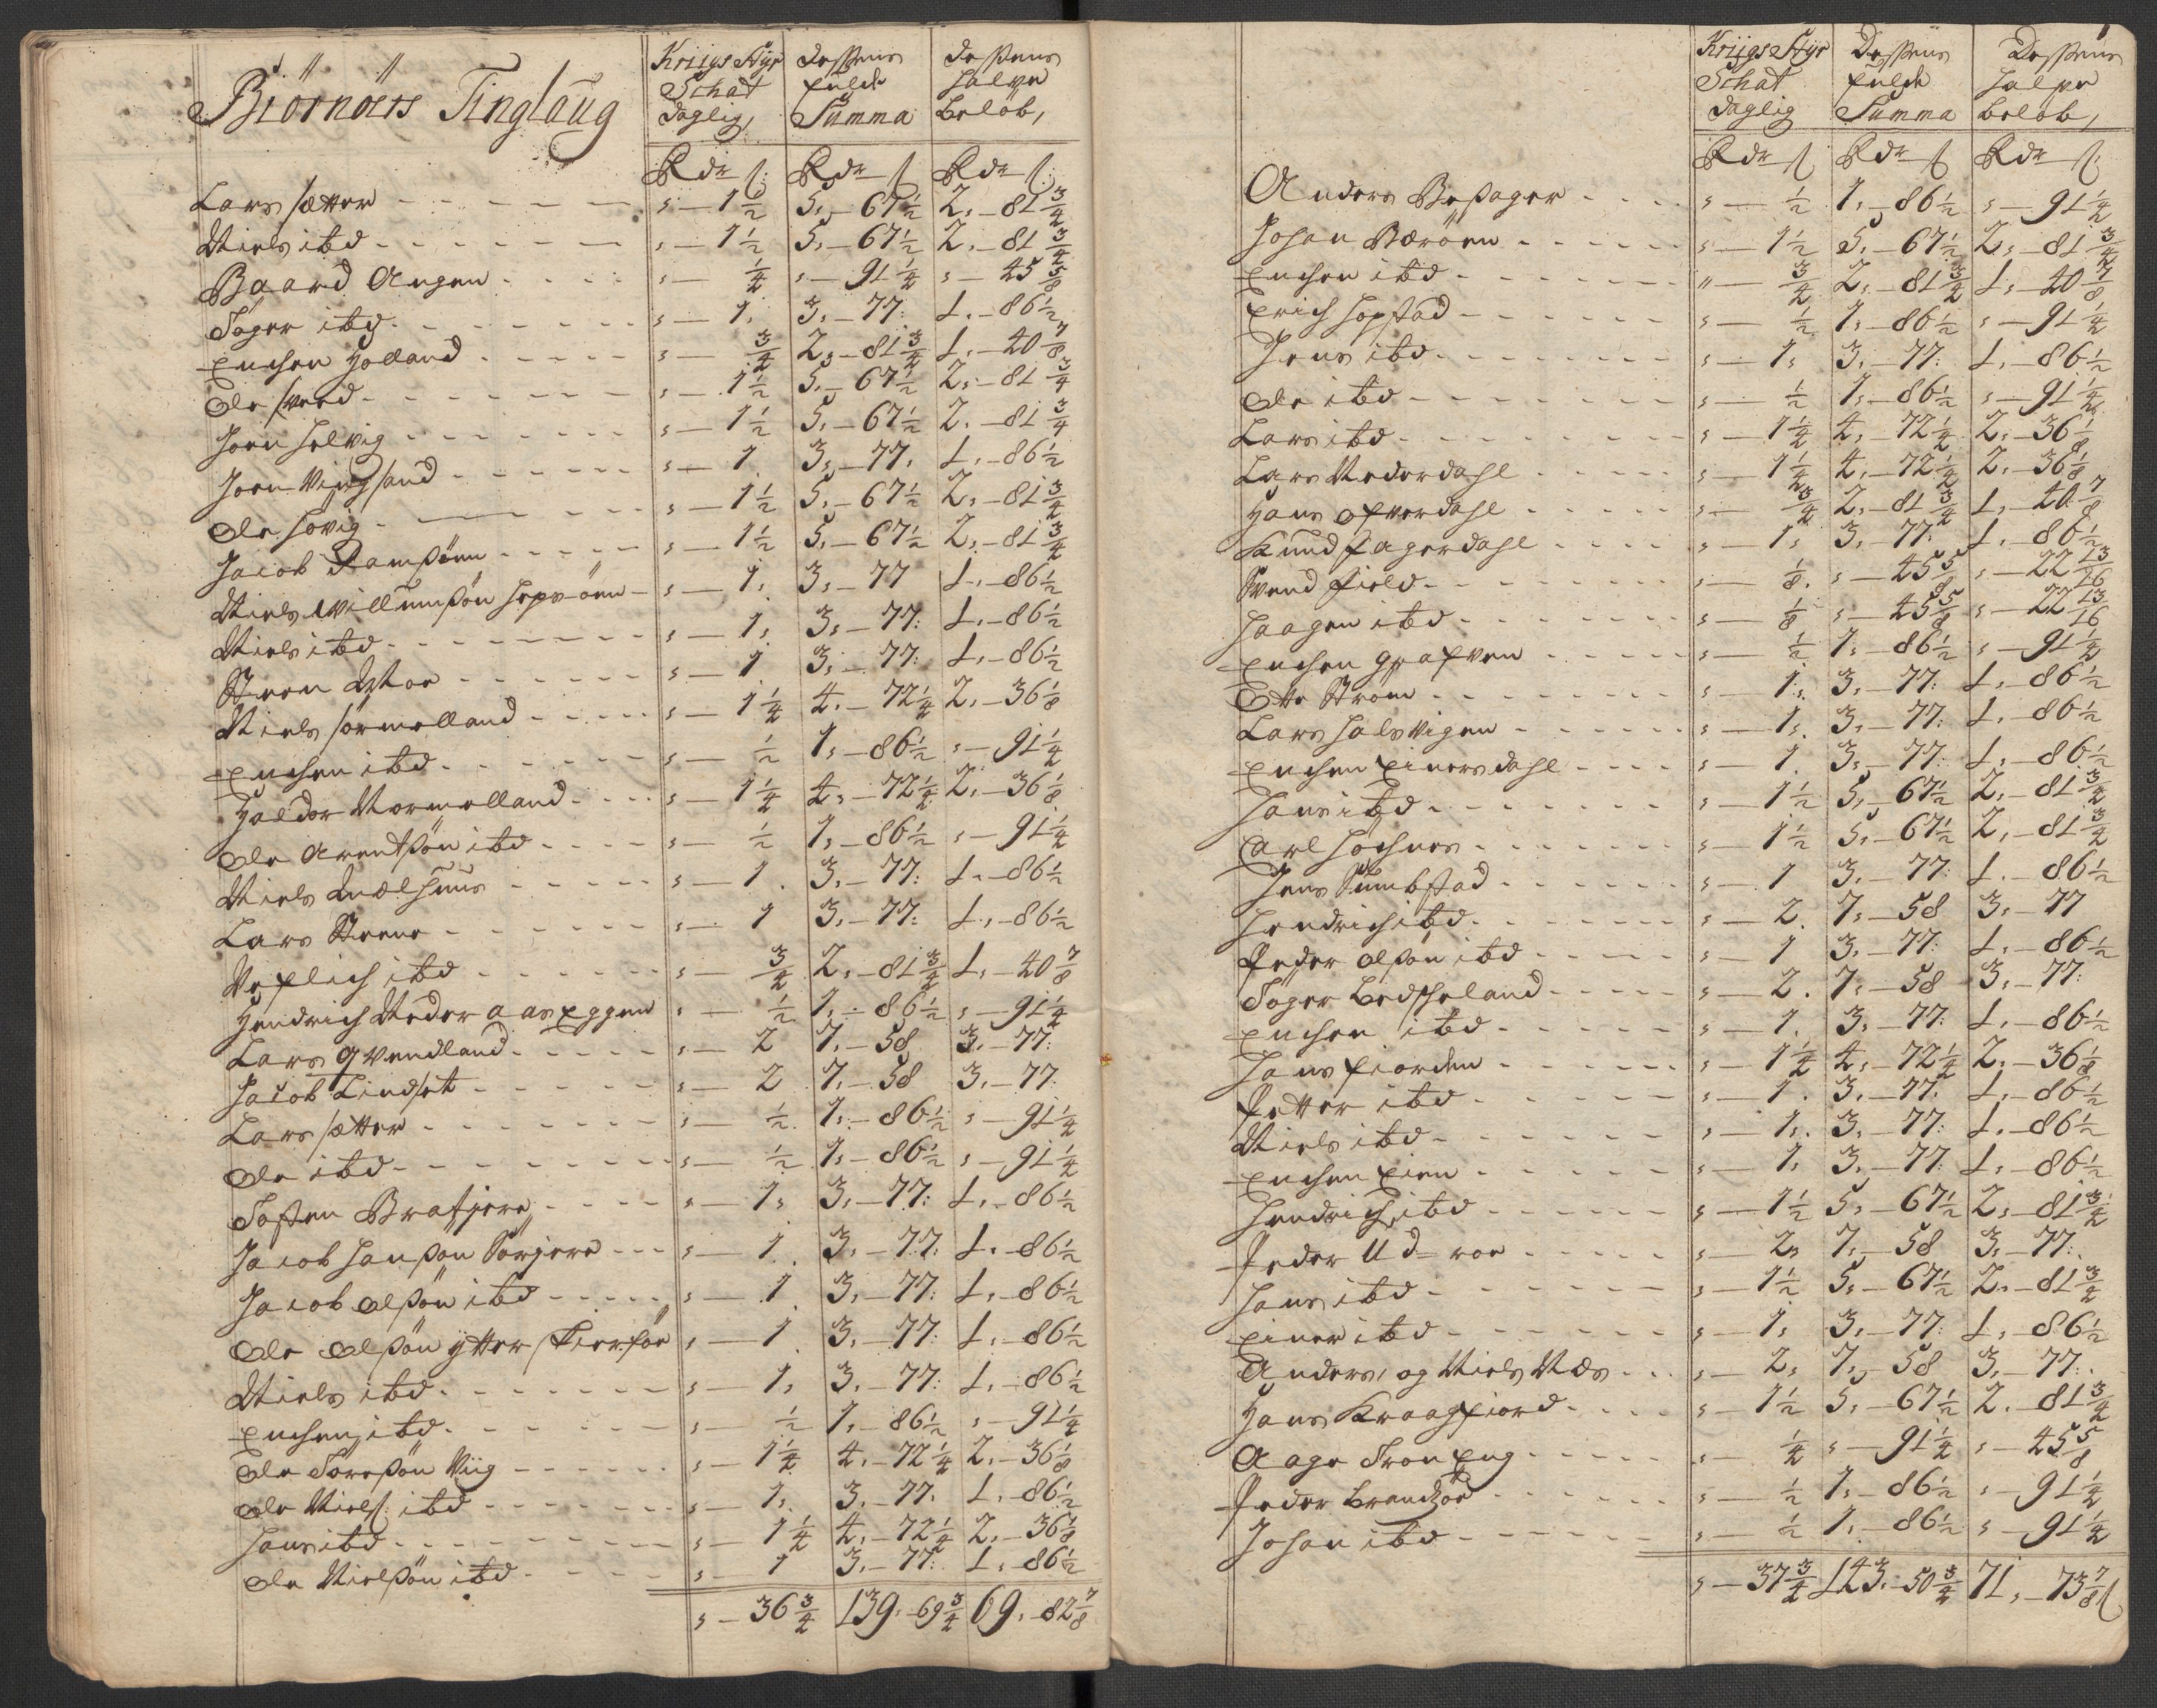 Biörnöers Tinglaug
Kriigs Styr Schat daglig, | dessens fulde Summa | dessens halve beløb,
Rdr ß: | Rdr ß | Rdr ß:
Lars sætter - - - - " — 1½ | 5,- 67½ | 2,- 81¾
Niels ibd - - - - " — 1½ | 5,- 67½ | 2,- 81¾
Baard Angen - - - - " — ¼ | " — 91¼ | " — 45⅝
Töger ibd - - - - " — 1, | 3,- 77: | 1,- 86½
Enchen Holland - - - - " — ¾ | 2,- 81¾ | 1,- 40⅞
Ole sverd - - - - " — 1½ | 5,- 67½ | 2,- 81¾
Joen Helvig - - - - " — 1½ | 5,- 67½ | 2,- 81¾
Joen Vingsand - - - - " — 1 | 3,- 77, | 1,- 86½
Ole Hovig - - - - " — 1½ | 5,- 67½ | 2,- 81¾
Jacob Ramsöen - - - - " — 1½ | 5,- 67½ | 2,- 81¾
Niels Willumsøn Hops-öen - " — 1, | 3,- 77 | 1,- 86½
Niels ibd - - - - " — 1, | 3,- 77: | 1,- 86½
Steen - - - - " — 1 | 3,- 77: | 1,- 86½
Niels sörmelland - - - - " — 1¼ | 4,- 72¼ | 2,- 36⅛
Enchen ibd - - - - " — ½ | 1,- 86½ | " — 91¼
Haldor Normelland - - - - " — 1¼ | 4,- 72¼ | 2,- 36⅛
Ole Arentsøn ibd - - - - " — ½ | 1,- 86½ | " — 91¼
Niels - - - - " — 1 | 3,- 77: | 1,- 86½
Lars Steene - - - - " — 1 | 3,- 77: | 1,- 86½
ibd - - - - " — ¾ | 2,- 81¾ | 1,- 40⅞
Hendrich Neder aas Eggen " — ½ | 1,- 86½ | " — 91¼
Lars Qvendland - - - - " — 2 | 7,- 58 | 3,- 77:
Jacob Lindset - - - - " — 2 | 7,- 58 | 3,- 77:
Lars sætter - - - - " — ½ | 1,- 86½ | " — 91¼
Ole ibd - - - - " — ½ | 1,- 86½ | " — 91¼
Tosten Bratjere - - - - " — 1, | 3,- 77: | 1,- 86½
Jacob Hansøn Sörjere - - - " — 1 | 3,- 77: | 1,- 86½
Jacob Olsøn ibd - - - - " — 1 | 3,- 77: | 1,- 86½
Ole Olsøn ytter skiersöe " — 1 | 3,- 77: | 1,- 86½
Niels ibd - - - - " — 1, | 3,- 77: | 1,- 86½
Enchen ibd - - - - " — ½ | 1,- 86½ | " — 91¼
Ole Töresøn Viig - - - - " — 1¼ | 4,- 72¼ | 2,- 36⅛
Ole Niels: ibd - - - - " — 1, | 3,- 77, | 1,- 86½
Hans ibd - - - - " — 1¼ | 4,- 72¼ | 2,- 36⅛
Ole Nielsøn ibd - - - - " — 1 | 3,- 77: | 1,- 86½
" — 36¾ | 139,- 69¾ | 69,- 82⅞
Kriigs Styr Schat daglig | Dessens fulde Summa | Dessens halve beløb,
Rdr ß | Rdr ß | Rdr ß:
Anders Bessager - - - - " — ½ | 1,- 86½ | " — 91¼
Johan Bæröen - - - - " — 1½ | 5,- 67½ | 2,- 81¾
Enchen ibd - - - - " — ¾ | 2,- 81¾ | 1,- 40⅞
Erich Hopstad - - - - " — ½ | 1,- 86½ | " — 91¼
Jens ibd - - - - " — 1, | 3,- 77: | 1,- 86½
Ole ibd - - - - " — ½ | 1,- 86½ | " — 91¼
Lars ibd - - - - " — 1¼ | 4,- 72¼ | 2,- 36⅛
Lars Nederdahl - - - - " — 1¼ | 4,- 72¼ | 2,- 36⅛
Hans Ofverdahl - - - - " — ¾ | 2,- 81¾ | 1,- 40⅞
Knud Fagerdahl - - - - " — 1, | 3,- 77: | 1,- 86½
Svend Field - - - - " — ⅛. | " — 45⅝ | " — 22 13/16
Haagen ibd - - - - " — ⅛ | " — 45⅝ | " — 22 13/16
Enchen Grafven - - - - " — ½ | 1,- 86½ | " — 91¼
Otte Ström - - - - " — 1, | 3,- 77: | 1,- 86½
Lars Halsvigen - - - - " — 1, | 3,- 77: | 1,- 86½
Enchen Einersdahl - - - - " — 1 | 3,- 77: | 1,- 86½
Hans ibd - - - - " — 1½ | 5,- 67½ | 2,- 81¾
Carl Hochnes - - - - " — 1½ | 5,- 67½ | 2,- 81¾
Jens Sumbstad - - - - " — 1 | 3,- 77: | 1,- 86½
Hendrich ibd - - - - " — 2. | 7,- 58 | 3,- 77
Peder Olsøn ibd - - - - " — 1 | 3,- 77: | 1,- 86½
Töger Bedscheland - - - - " — 2. | 7,- 58 | 3,- 77:
Enchen ibd - - - - " — 1. | 3,- 77: | 1,- 86½
Hans Fiorden - - - - " — 1¼ | 4,- 72¼ | 2,- 36⅛
Petter ibd - - - - " — 1. | 3,- 77. | 1,- 86½
Niels ibd - - - - " — 1,. | 3,- 77: | 1,- 86½
Enchen Eien - - - - " — 1, | 3,- 77: | 1,- 86½
Hendrich ibd - - - - " — 1½ | 5,- 67½ | 2,- 81¾
Peder Ud-roe - - - - " — 2, | 7,- 58 | 3,- 77:
Hans ibd - - - - " — 1½ | 5,- 67½ | 2,- 81¾
Einer ibd - - - - " — 1, | 3,- 77: | 1,- 86½
Anders, og Niels Næs - - - " — 2, | 7,- 58 | 3,- 77:
Hans Kraagfiord - - - - " — 1½ | 5,- 67½ | 2.- 81¾
Aage Troneng - - - - " — ¼ | " — 91¼ | " — 45⅝
Peder Brandzöe - - - - " — ½ | 1,- 86½ | " — 91¼
Johan ibd - - - - " — ½ | 1,- 86½ | " — 91¼
" — 37¾ | 143,- 50¾ | 71,- 73⅞ ß